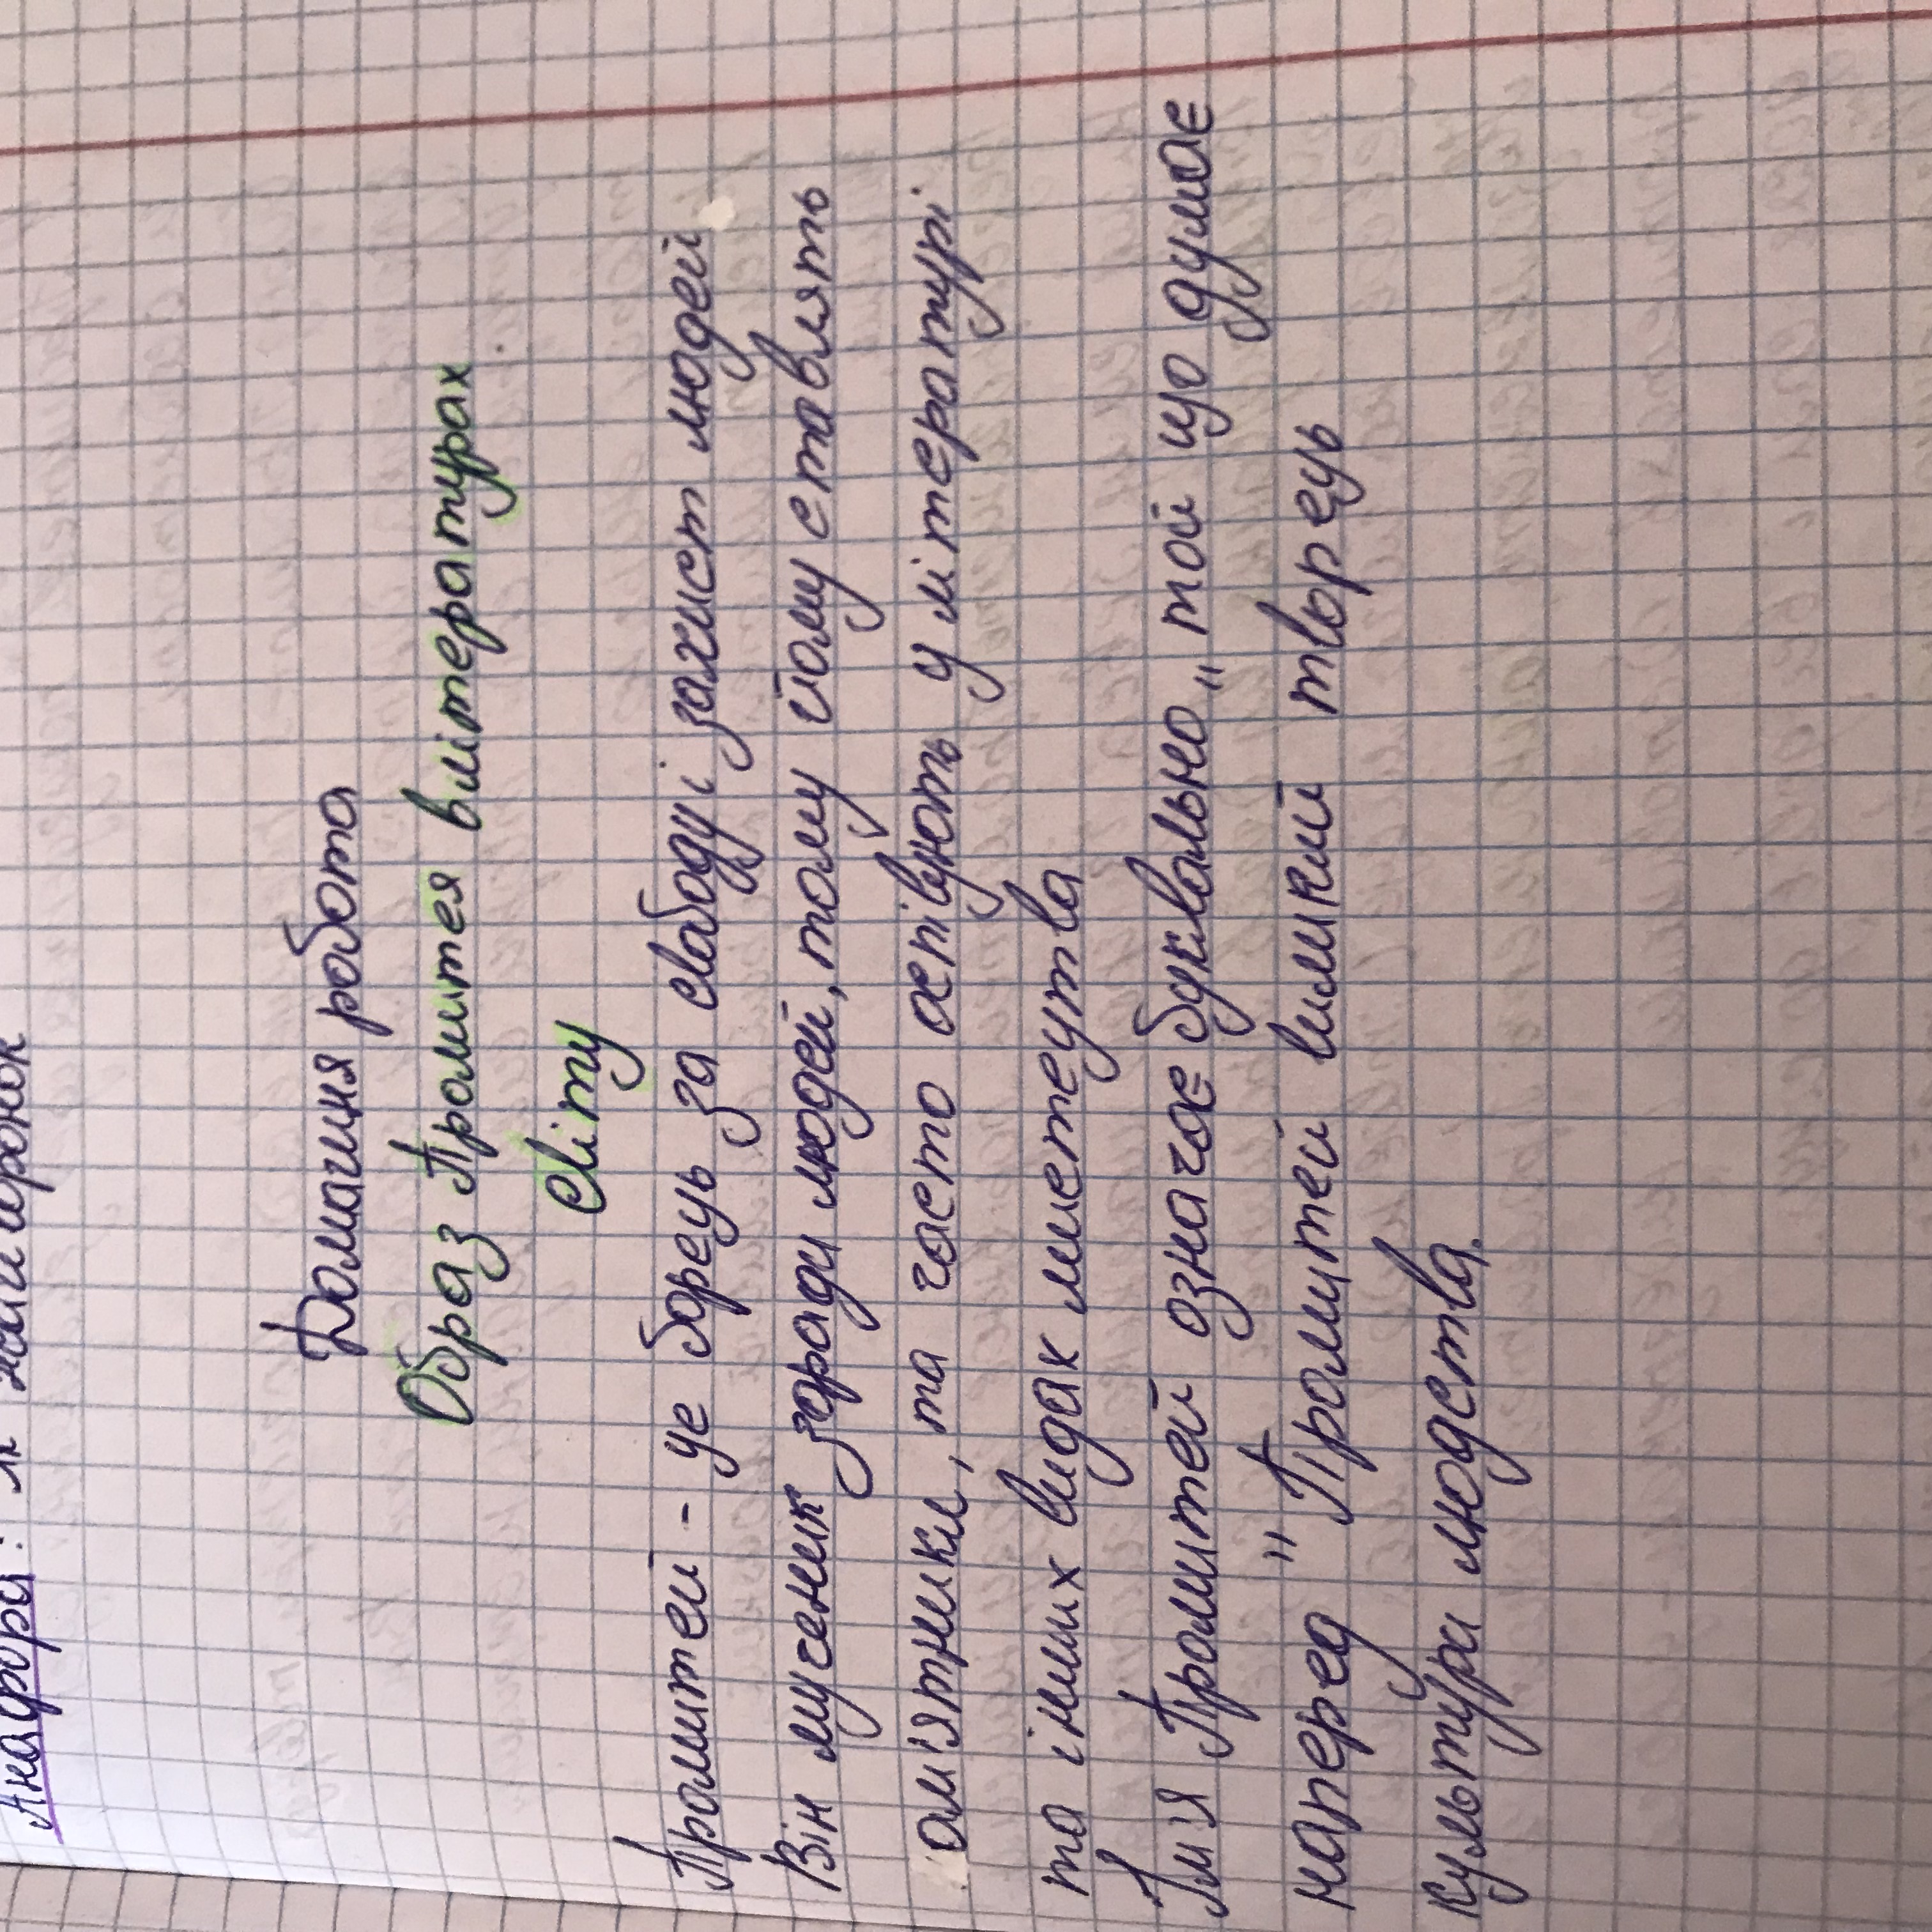 Анафора:
Домашня робота
Образ Промитея в літературах
світу
Промитей - це борець за свабоду і захист людей
Він мученик заради людей, тому йому ставлять
ам'ятники, та часто оспівують у літературі
та інших видах мистеутва
Їм'я Промитей означає буквально „той що думає
наперед" Промитей виликий творець
культури людства.